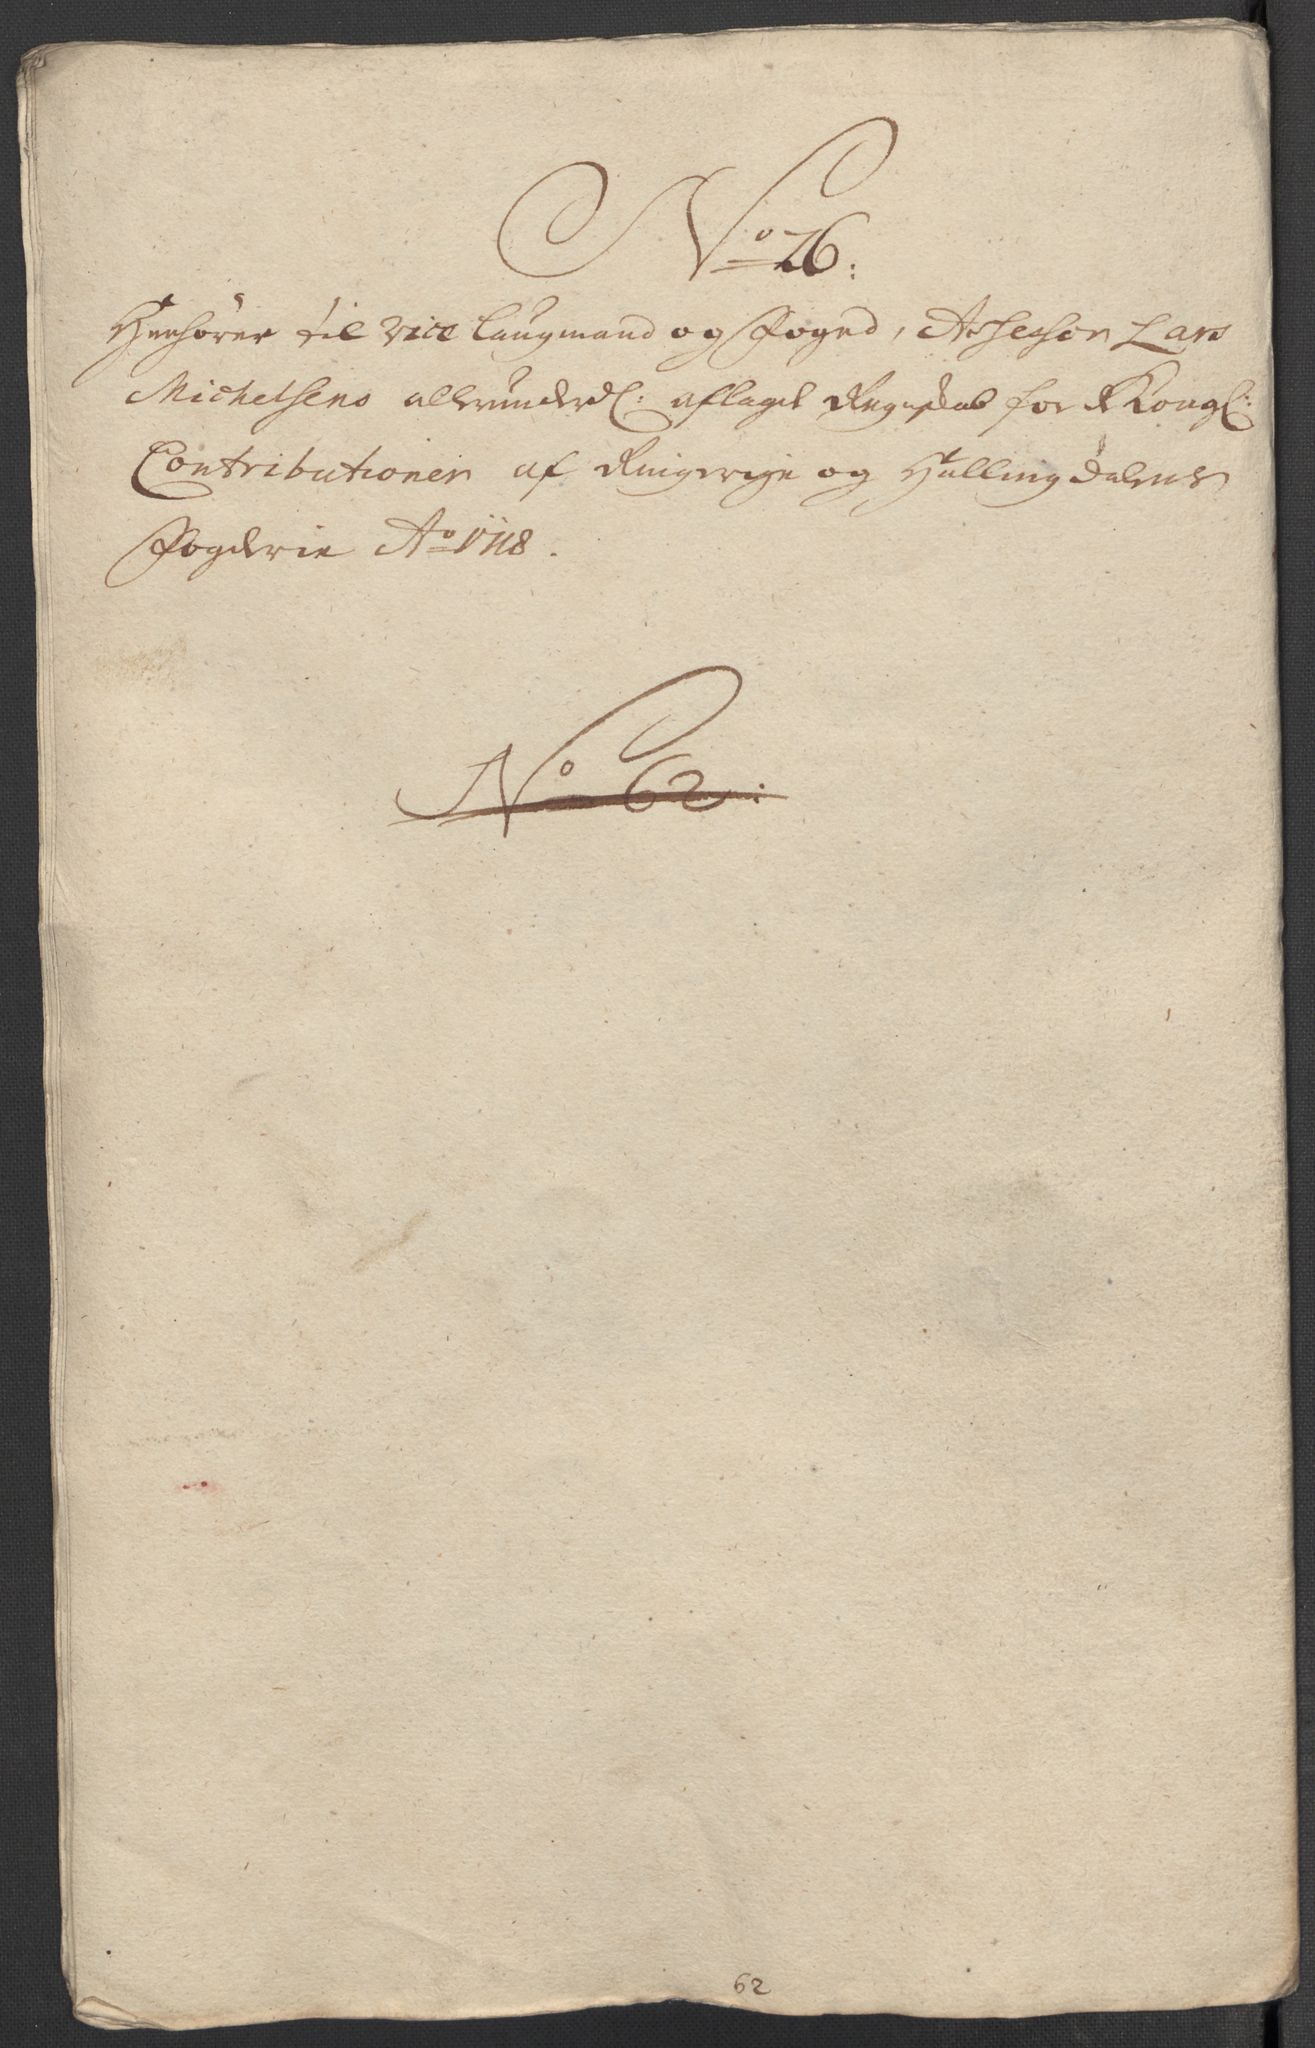 No 26:
Henhörer til Vice Laugmand og Foged, Assessor Lars
Michelsens allerunderd: aflagde Regnskab for de Kongl:
Contributioner af Ringerige og Hallingdalens
Fogderie Ao 1718.
No 62:
62